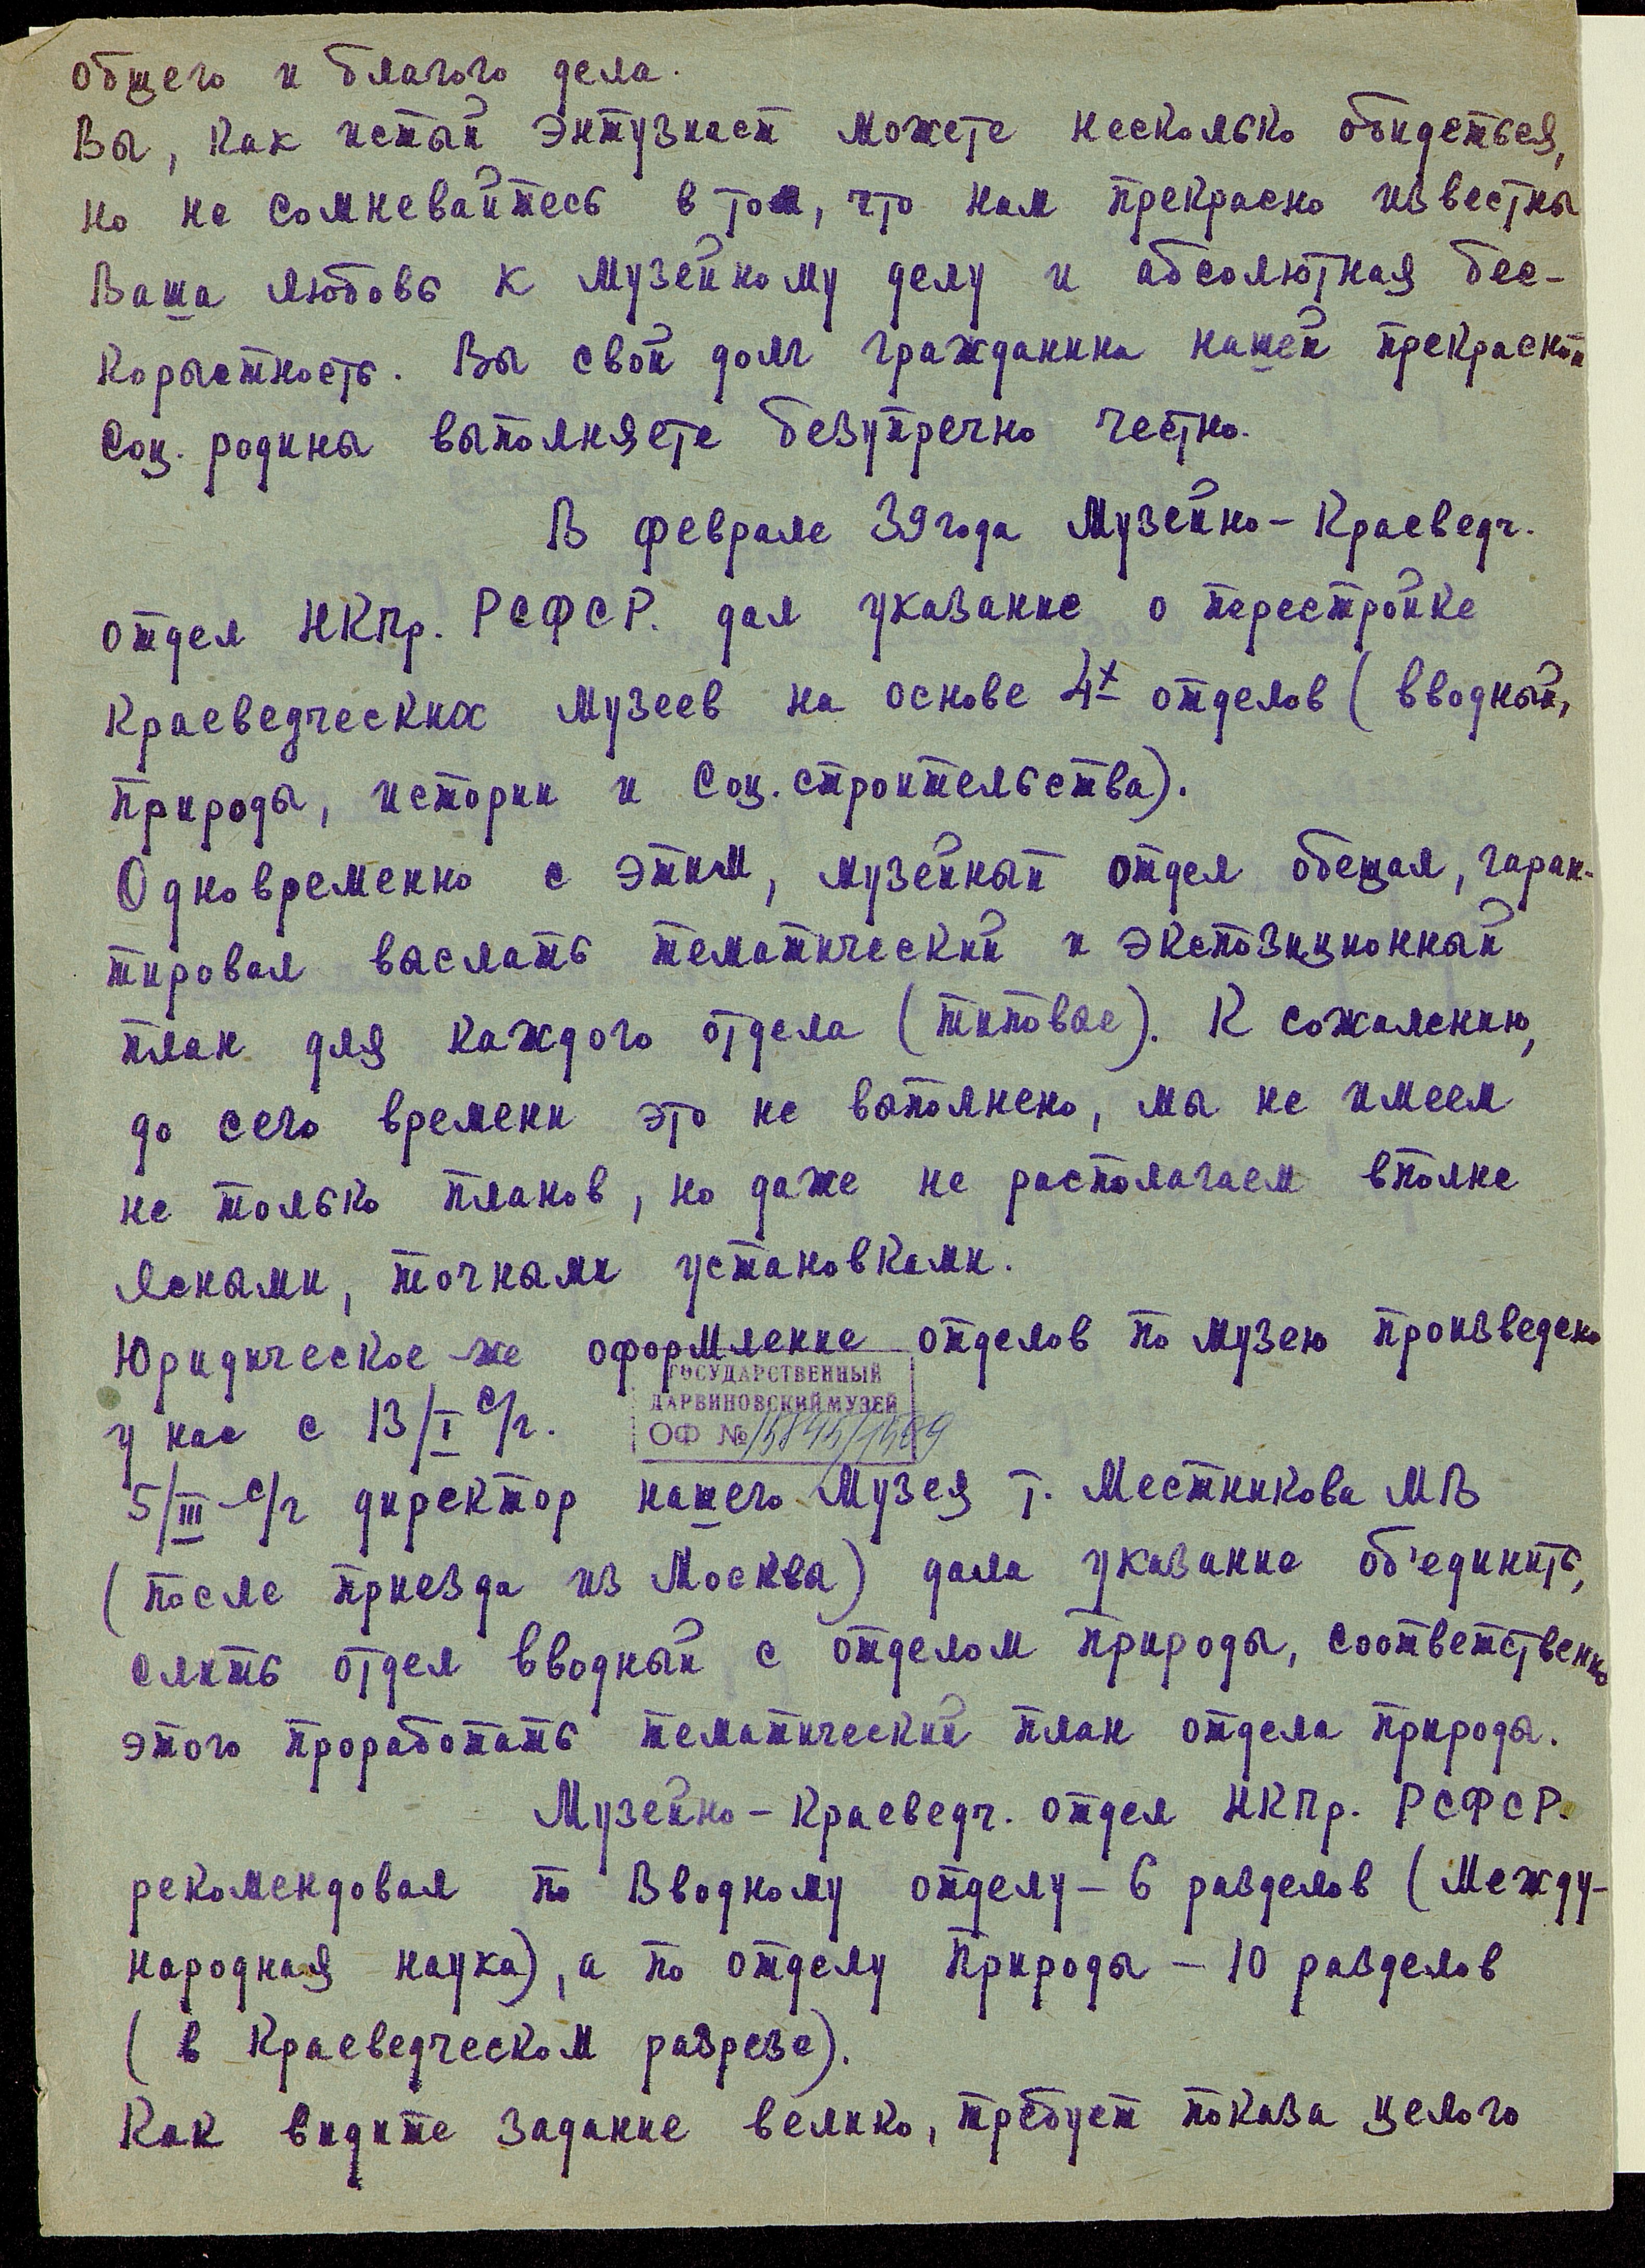 общего и благого дела.
Вы, как истый энтузиаст можете несколько обидеться,
но не сомневайтесь в том, что нам прекрасно известны
Ваша любовь к музейному делу и абсолютная бес-
корыстность. Вы свой долг гражданина нашей прекрасной
Соц. родины выполняете безупречно честно.
В феврале 39 года Музейно-Краеведч.
отдел НКПр. РСФСР. дал указание о перестройке
краеведческих музеев на основе 4х отделов (вводный,
природы, истории и Соц. строительства).
Одновременно с этим, музейный отдел обещал, гаран-
тировал выслать тематический и экспозиционный
план для каждого отдела (типовые). К сожалению,
до сего времени это не выполнено, мы не имеем
не только планов, но даже не располагаем вполне
ясными, точными установками.
Юридическое же оформление отделов по музею произведено
ГОСУДАРСТВЕННЫЙ
ДАРВИНОВСКИЙ МУЗЕЙ
ОФ №
у нас с 13/I с/г.
5/III с/г директор нашего Музея т. Местникова МВ
(после приезда из Москвы) дала указание об'единить,
слить отдел вводный с отделом природы, соответственно
этого проработать тематический план отдела природы.
Музейно-Краеведч. отдел НКПр. РСФСР.
рекомендовал по Вводному отделу - 6 разделов (Между-
народная наука), а по отделу Природы - 10 разделов
(в Краеведческом разрезе).
Как видите задание велико, требует показа целого